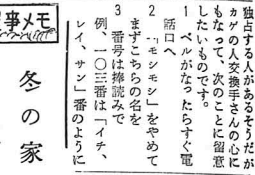 独占する人があるそうだが
カゲの人交換手さんの心に
もなって、次のことに留意
したいものです。
1 ベルがなったらすぐ電
話口へ
2 「モシモシ」をやめて
まずこちらの名を
3 番号は捧読みで
例、一〇三番は「イチ、
レイ、サン」番のように
事メモ
冬の家